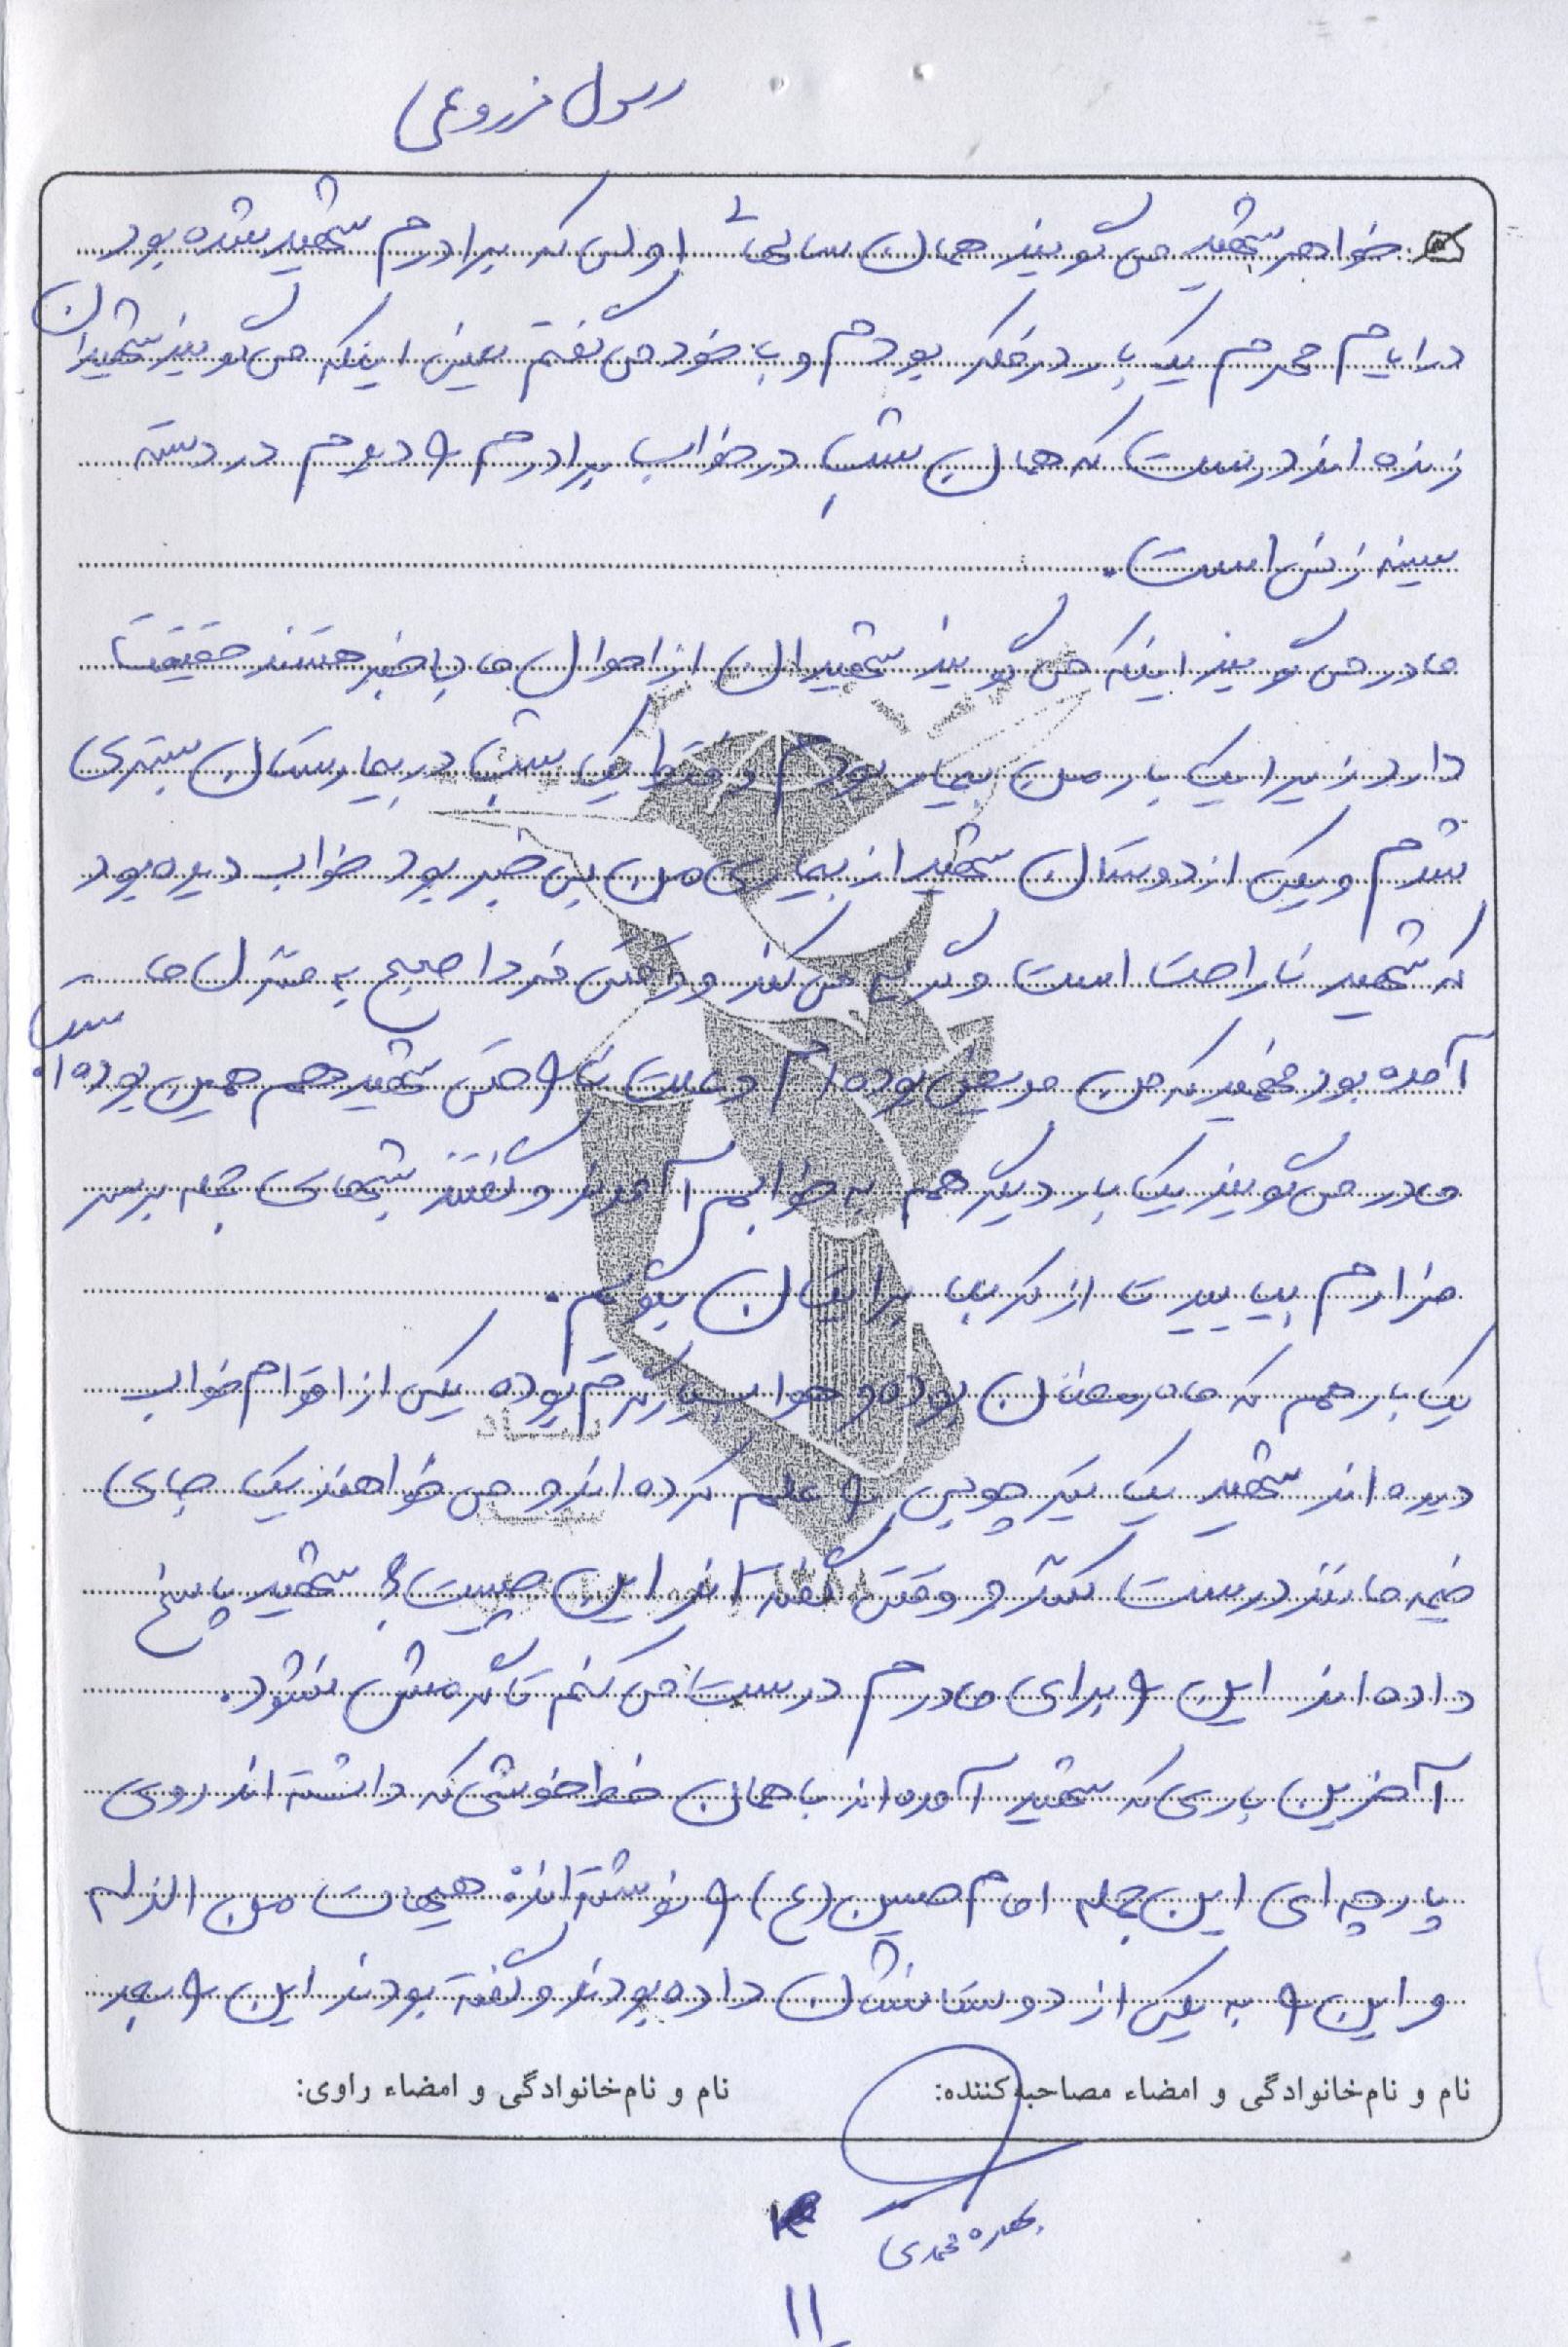 رسول مزروعی
خواهر شهید می گویند همان سالهای اولی که برادرم شهید شده بود
در ایام محرم یک بار در فکر بودم و با خود می گفتم یعنی اینکه می گویند شهیدان
زنده اند درست که همان شب در خواب برادرم را دیدم در دسته
سینه زنی است.
مادر می گویند اینکه می گویند شهیدان از احوال ما باخبر هستند حقیقت
دارد زیرا یک بار من بیمار بودم و فقط یک شب در بیمارستان بستری
شدم و یکی از دوستان شهید از بیماری من بی خبر بود خواب دیده بود
که شهید ناراحت است و گریه می کند و وقتی فردا صبح به منزل ما
آمده بود فهمید که من مریض بوده ام و علت ناراحتی شهید هم همین بوده است
مادر می گویند یک بار دیگر هم به خوابم آمدند و گفتند شبهای جمعه بر سر
مزارم بیایید از کربلا برایتان بگویم.
یک بار هم که ماه رمضان بوده و هوا بسیار گرم بوده یکی از اقوام خواب
دیده اند شهید یک تیر چوبی را علم کرده اند و می خواهند یک جای
خیمه مانند درست کنند و وقتی گفته اند این چیست؟ شهید پاسخ
داده اند این را برای مادرم درست می کنم تا گرمش نشود.
آخرین باری که شهید آمده اند با همان خط خوشی که داشته اند روی
پارچه ای این جمله امام حسین (ع) را نوشته اند: هیهات من الذله
و این را به یکی از دوستانشان داده بودند و گفته بودند این را بعد
نام و نام‌خانوادگی و امضاء مصاحبه‌کننده: نام و نام‌خانوادگی و امضاء راوی:
محمدی
۱۱